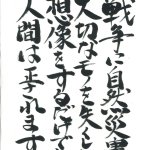 戦争に自然災害
大切なモノを失くし
想像をするだけで
人間は れます